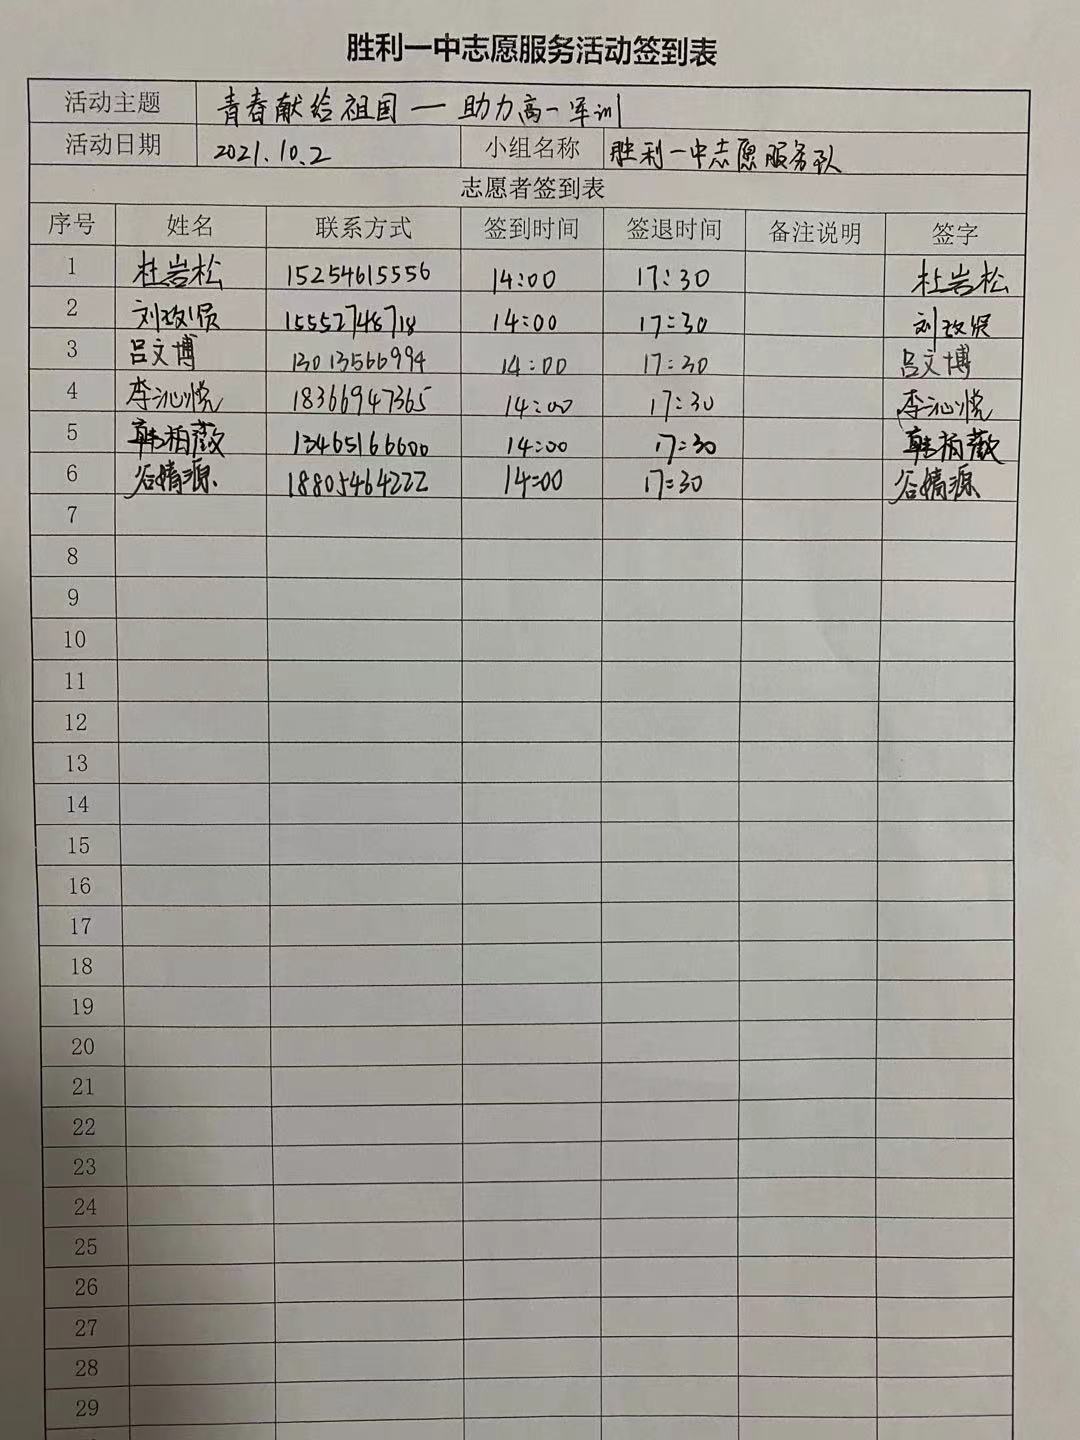 胜利一中志愿服务活动签到表
活动主题 青春献给祖国一助力高一军训
活动日期 2021.10.2 小组名称 胜利一中志愿服务队
志愿者签到表
序号 姓名 联系方式 签到时间 签退时间 备注说明 签字
1 杜岩松 15254615556 14:00 17:30 杜岩松
2 15552748718 14:00 17:30
3 吕文博 13013566994 14:00 17:30 吕文博
4 李沁悦 18366947365 14:00 17:30 李沁悦
5 韩柏薇 13465166600 14:00 17:30 韩柏薇
6 谷婧源 18805464222 14:00 17:30 谷婧源
7
8
9
10
11
12
13
14
15
16
17
18
19
20
21
22
23
24
25
26
27
28
29